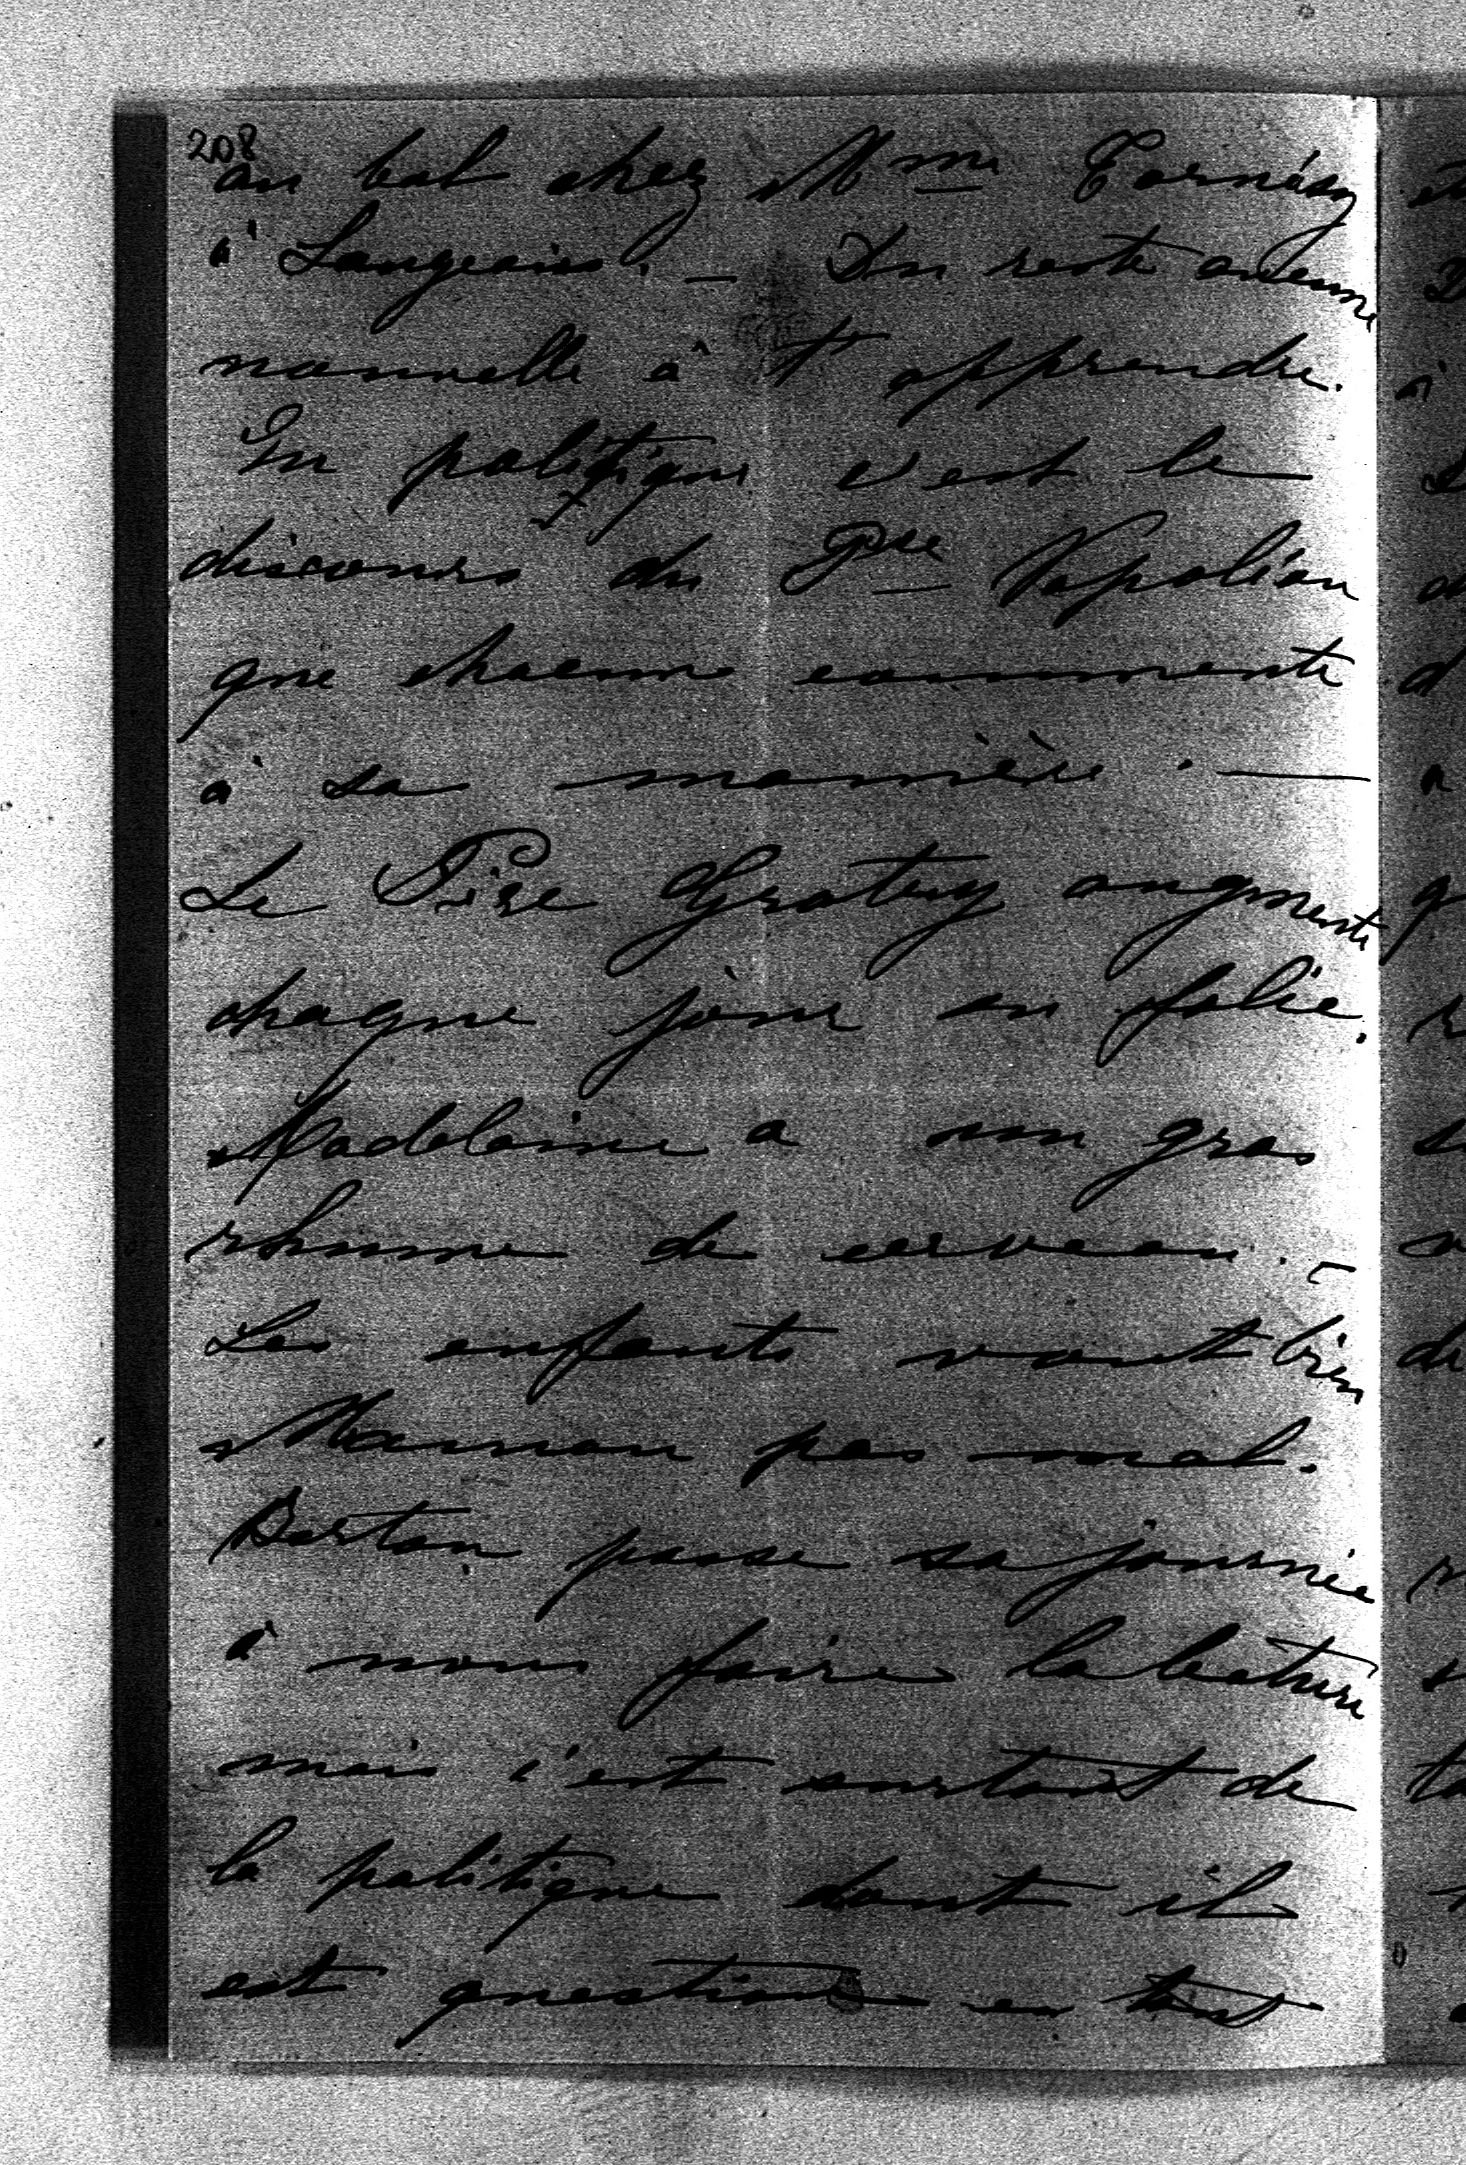 208
au bal chez Mme
à Langeais. — Du reste aucune
nouvelle à t'apprendre.
En politique c'est le
discours du Pce Napoléon
que chacun commente
à sa manière. —
Le Père Gratry augmente
chaque jour en folie.
Madeleine a un gros
rhume de cerveau. —
Les enfants vont bien
Maman pas mal.
Berton passe sa journée
à nous faire la lecture
mais c'est surtout de
la politique dont il
est question en tout